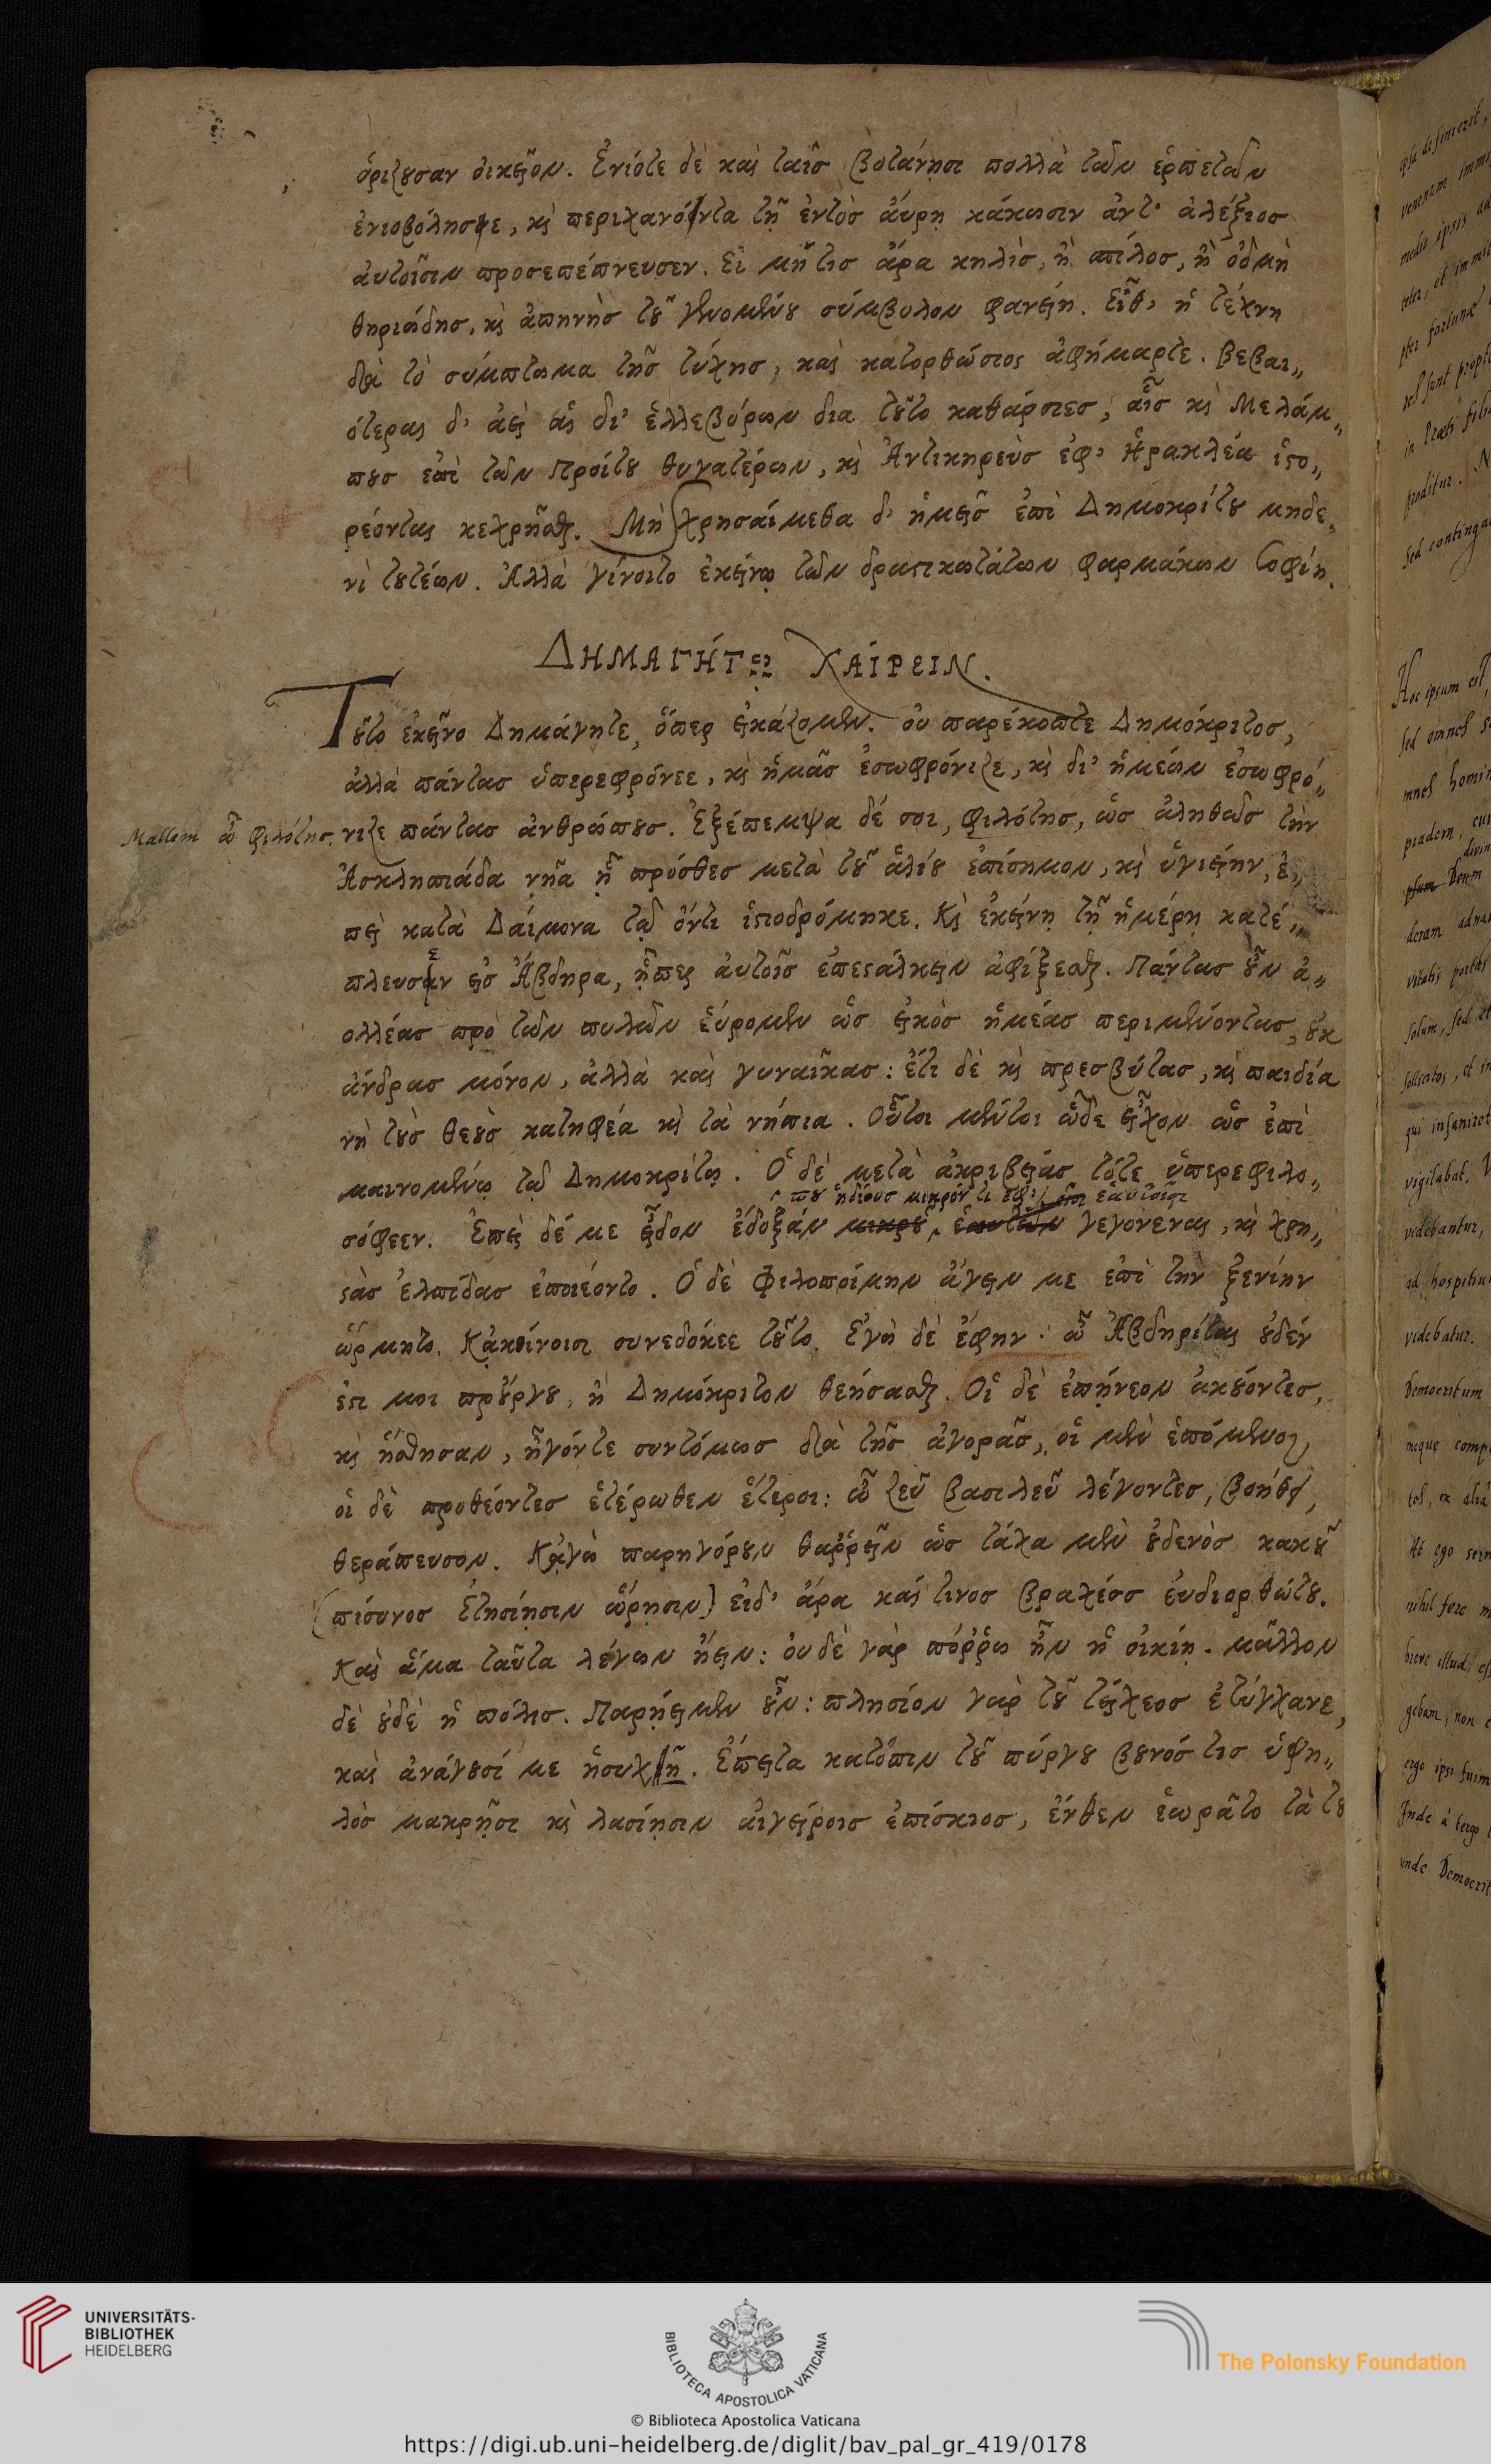 ὁρίζουσαν οἰκεῖον. Ἐνίοτε δὲ καὶ ταῖς βοτάνῃσι πολλὰ τῶν ἑρπετῶν
ἐνιοβόλησε, καὶ περιχανόντα τῇ ἐντὸς αὔρῃ κάκωσιν ἀντ' ἀλέξιος
αὐτοῖσιν προσεπέπνευσεν. Εἰ μή τις ἄρα κηλὶς, ἢ σπίλος, ἢ ὀδμὴ
θηριώδης, καὶ ἀπηνὴς τοῦ γενομένου σύμβολον φανείη. Εἶθ' ἡ τέχνη
διὰ τὸ σύμπτωμα τῆς τύχης, καὶ κατορθώσιος ἀφήμαρτε. Βεβαι„
ότεραι δ' ἀεὶ αἱ δι' ἑλλεβόρων δια τοῦτο καθάρσιες, αἷς καὶ Μελάμ„
πους ἐπὶ τῶν Προίτου θυγατέρων, καὶ Ἀντικηρεὺς ἐφ' Ἡρακλέα ἱστο„
ρέονται κεχρῆσθαι. Μὴ χρησαίμεθα δ' ἡμεῖς ἐπὶ Δημοκρίτου μηδε„
νὶ τουτέων. Ἀλλὰ γίνοιτο ἐκείνῳ τῶν δραστικωτάτων φαρμάκων σοφίη.
ΔΗΜΑΓΉΤΩ ΧΑΊΡΕΙΝ.
Τοῦτο ἐκεῖνο Δημάγητε, ὅπερ εἰκάζομεν. οὐ παρέκοπτε Δημόκριτος,
ἀλλὰ πάντας ὑπερεφρόνεε, καὶ ἡμᾶς ἐσωφρόνιζε, καὶ δι' ἡμέων ἐσωφρό„
Mallem ὦ φιλότης. νιζε πάντας ἀνθρώπους. Ἐξέπεμψα δέ σοι, φιλότης, ὡς ἀληθῶς τὴν
Ἀσκληπιάδα νῆα ᾗ πρόσθες μετὰ τοῦ ἁλίου ἐπίσημον, καὶ ὑγιείην, ἐ„
πεὶ κατὰ Δαίμονα τῷ ὄντι ἱστιοδρόμηκε. Καὶ ἐκείνῃ τῇ ἡμέρῃ κατέ„
πλευσεν ἐς Ἄβδηρα, ᾗπερ αὐτοῖς ἐπεστάλκειν ἀφίξεσθαι. Πάντας οὖν ἀ„
ολλέας πρὸ τῶν πυλῶν εὕρομεν ὡς εἰκὸς ἡμέας περιμένοντας, οὐκ
ἄνδρας μόνον, ἀλλὰ καὶ γυναῖκας: ἔτι δὲ καὶ πρεσβύτας, καὶ παιδία
νὴ τοὺς θεοὺς κατηφέα καὶ τὰ νήπια. Οὗτοι μέντοι ὧδε εἶχον ὡς ἐπὶ
μαινομένῳ τῷ Δημοκρίτῳ. Ὁ δὲ μετὰ ἀκριβείας τότε ὑπερεφιλο„
που ἡδίους μικρόν τι ἐφ' ἑαυτοῖσι
σόφεεν. Ἐπεὶ δέ με εἶδον ἔδοξαν μικροῦ, ἑαυτῶν γεγονέναι, καὶ χρη„
στὰς ἐλπίδας ἐποιέοντο. Ὁ δὲ Φιλοποίμην ἄγειν με ἐπὶ τὴν ξενίην
ὥρμητο. Κᾀκείνοισι συνεδόκεε τοῦτο. Ἐγὼ δὲ ἔφην: ὦ Ἀβδηρῖται οὐδέν
ἐστι μοι προὔργου, ἢ Δημόκριτον θεήσασθαι. Οἱ δὲ ἐπῄνεον ἀκούοντες,
καὶ ἥσθησαν, ἦγόντε συντόμως διὰ τῆς ἀγορᾶς, οἱ μὲν ἑπόμενοι,
οἱ δὲ προθέοντες ἑτέρωθεν ἕτεροι: ὦ ζεῦ βασιλεῦ λέγοντες, βοήθει,
θεράπευσον. Κᾀγὼ παρηγόρουν θαῤῥεῖν ὡς τάχα μὲν οὐδενὸς κακοῦ
(πίσυνος ἐτησίῃσιν ὥρῃσιν) εἰδ' ἄρα καί τινος βραχέος εὐδιορθώτου.
Καὶ ἅμα ταῦτα λέγων ᾔειν: οὐδὲ γὰρ πόῤῥω ἦν ἡ οἰκίη. μᾶλλον
δὲ οὐδὲ ἡ πόλις. Παρῄειμεν οὖν: πλησίον γὰρ τοῦ τείχεος ἐτύγχανε,
καὶ ἀνάγουσί με ἡσυχῆ. Ἔπειτα κατόπιν τοῦ πύργου βουνός τις ὑψη„
λὸς μακρῇσι καὶ λασίῃσιν αἰγείροις ἐπίσκιος, ἔνθεν ἑωρᾶτο τὰ τοῦ
Hoc ipsum est,
sed omnes
videbatur.
Democritum
neque
nihil fere
ergo ipsi
Inde à tergo
unde Democrit
UNIVERSITÄTS-
BIBLIOTHEK
HEIDELBERG
BIBLIOTECA APOSTOLICA VATICANA
The Polonsky Foundation
© Biblioteca Apostolica Vaticana
https://digi.ub.uni-heidelberg.de/diglit/bav_pal_gr_419/0178